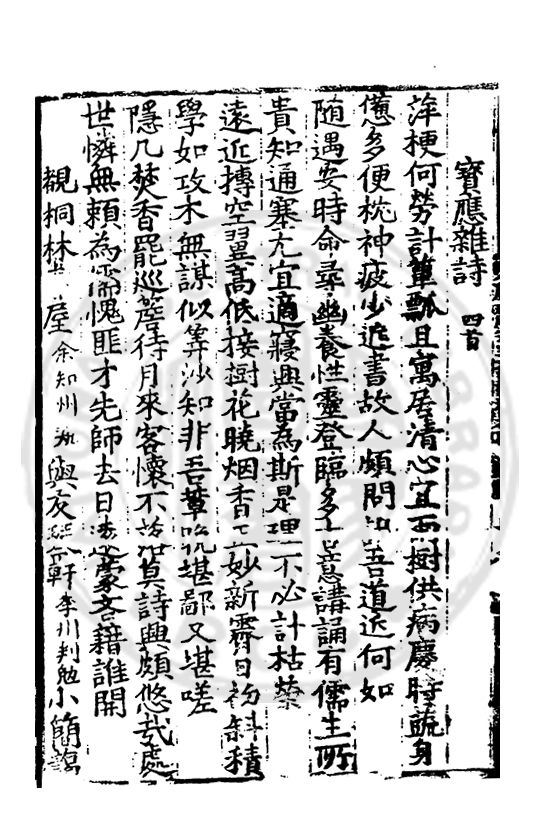 寶應雜詩 四首
萍梗何勞計簞瓢且寓居清心宜雨樹供病廢時蔬身
憊多便枕神疲少近書故人頗問吾道近何如
随遇安時命尋幽養性靈登臨多意講誦有儒生所
貴知通塞尤宜適寢興當為斯是理不必計枯榮
遠近摶空翼高低接樹花曉烟香妙新霽日初斜積
學如攻木無謀似筭沙知非吾輩堪鄙又堪嗟
隱几焚香罷巡簷待月來客懷不莫詩興頗悠哉處
世憐無賴為儒愧匪才先師去日遠蒙吝籍誰開
觀桐林屋 余知州與友軒李州判勉小簡